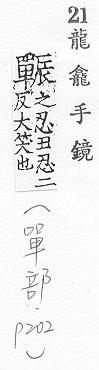 21 龍龕手鏡
之忍丑忍二
反大笑也
(單部.p202)